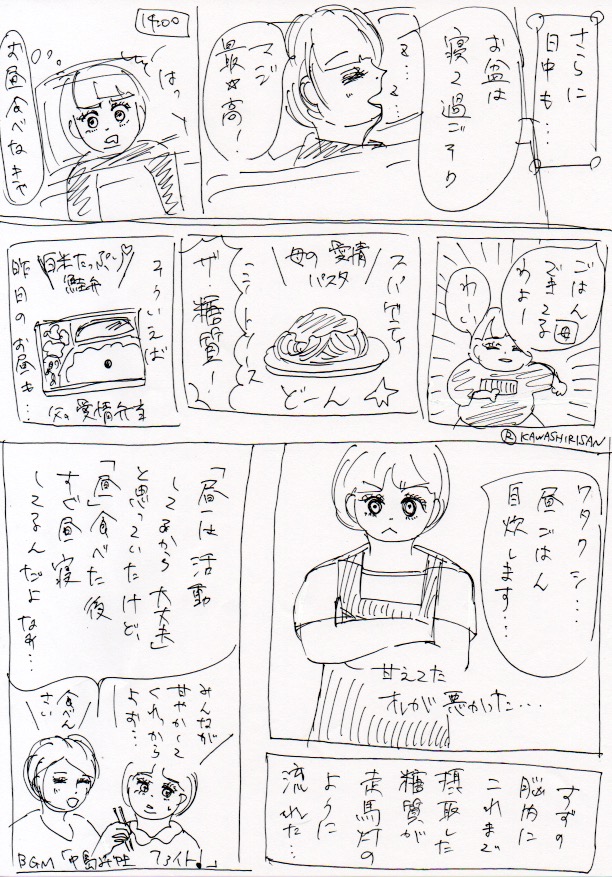 さらに
日中も…
お盆は
寝て過ごそり
マジ
最☆高！
14:00
はっ
お昼食べなきゃ
ごはん
できてる
わよー
母
わーい
スパゲティ
どーん☆
母の愛情
パスタ
ザ糖質！
そういえば
昨日のお昼も…
白米たっぷり♡
鮭弁
父の愛情弁当
® KAWASHIRISAN
ワタクシ…
昼ごはん
自炊します…
甘えてた
オレが悪かった…
すずの
脳内に
これまで
摂取した
糖質が
走馬灯の
ように
流れた…
「昼」は活動
してるから大丈夫」
と思っていたけど、
「昼」食べた後
すぐ昼寝
してるんだよなぁ…
みんなが
甘やかして
くれっから
よぉ…
食べん
さい
BGM「中島みゆき ファイト！」